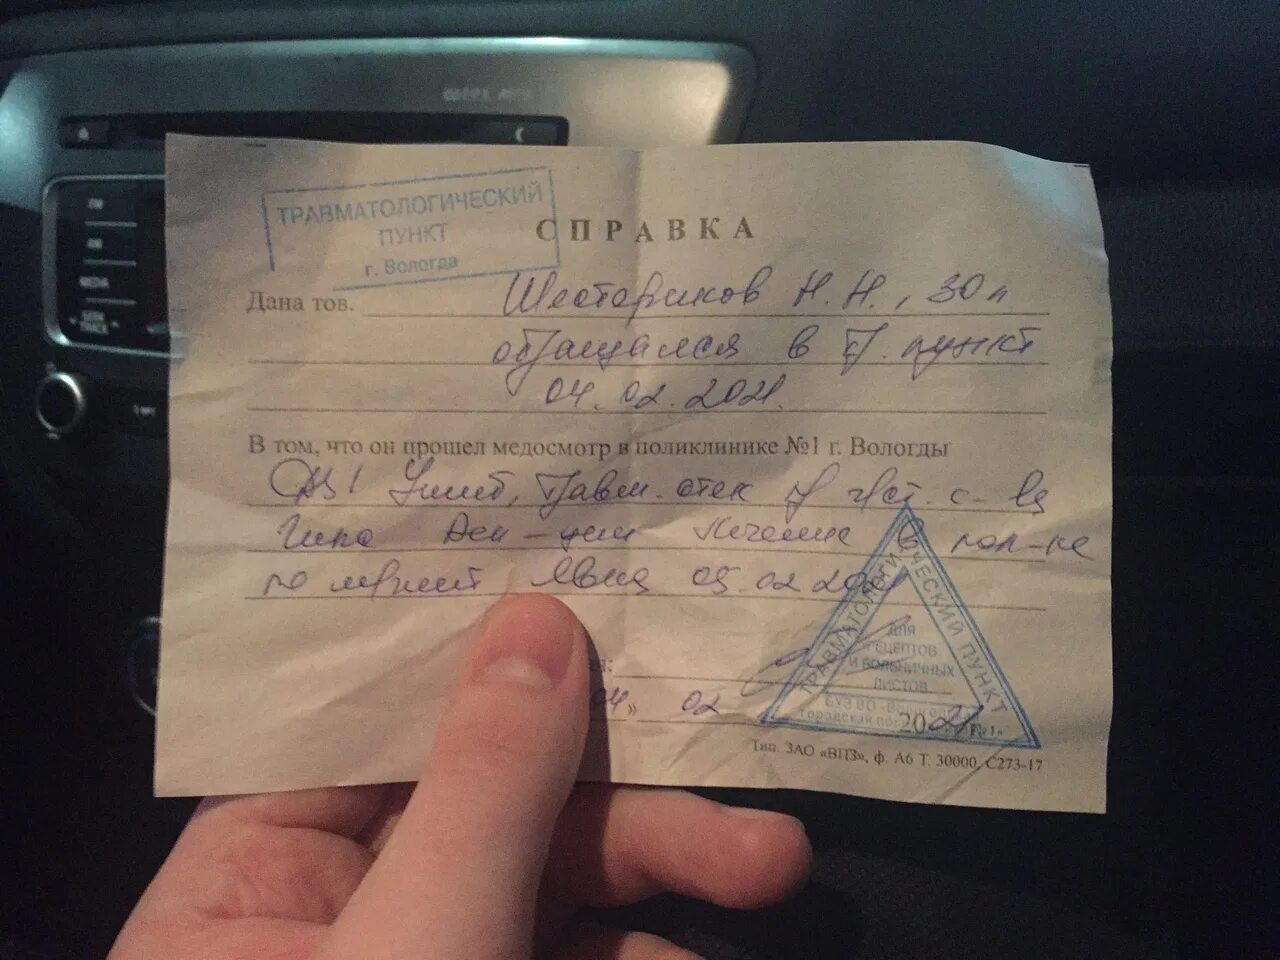 ТРАВМАТОЛОГИЧЕСКИЙ
ПУНКТ
г. Вологда
СПРАВКА
Дана тов. Шестериков Н.Н., 30 л
обращался в тр. пункт
04.02.2021.
В том, что он прошел медосмотр в поликлинике №1 г. Вологды
DS! Ушиб, травм. отек
Гипс лечение в пол-ке
по явка 05.02.2021
04» 02 2021
ТРАВМАТОЛОГИЧЕСКИЙ ПУНКТ
ДЛЯ
РЕЦЕПТОВ
И БОЛЬНИЧНЫХ
ЛИСТОВ
БУЗ ВО
Тип. ЗАО «ВПЗ», ф. А6 Т. 30000, С273-17